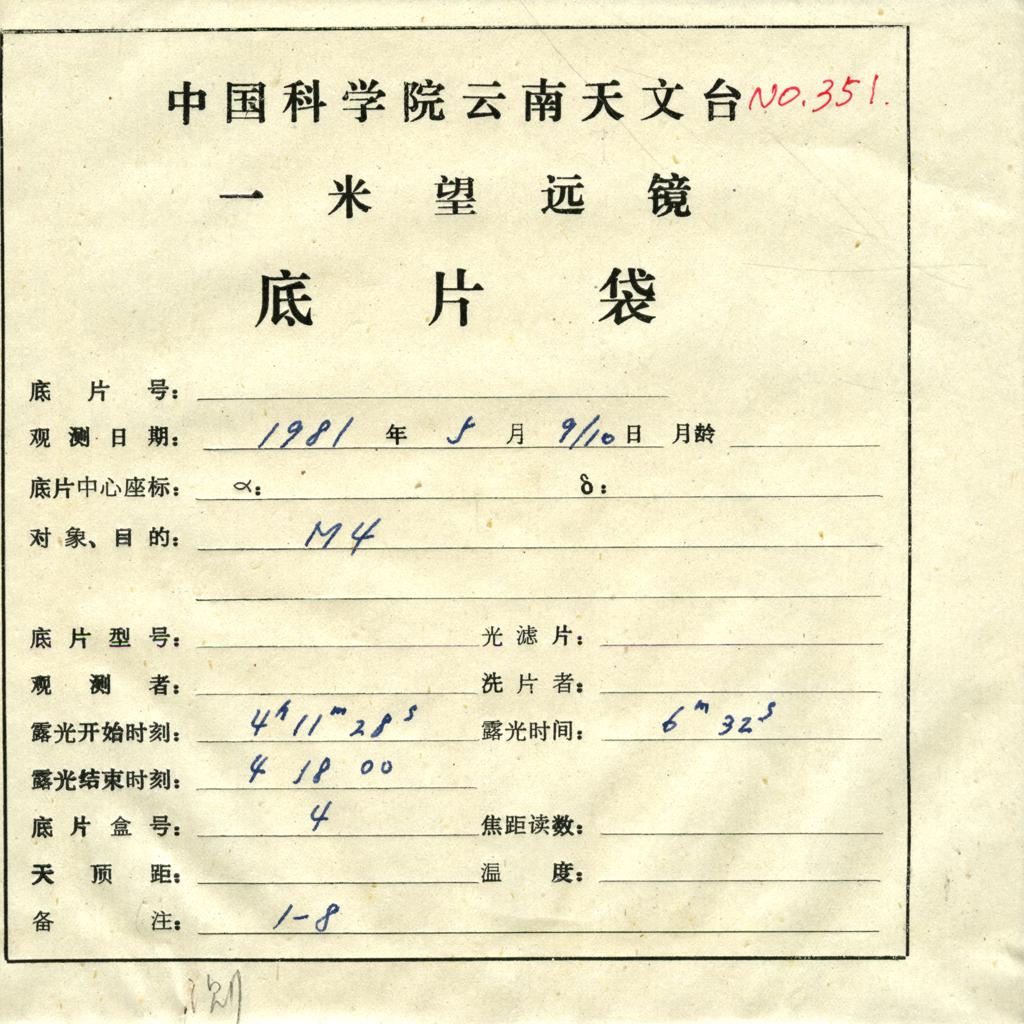 中国科学院云南天文台 NO.351.
一米望远镜
底片袋
底片号：
观测日期： 1981 年 5 月 9/10 日 月龄
底片中心座标： α： δ：
对象、目的： M4
底片型号： 光滤片：
观测者： 洗片者：
露光开始时刻： 4h 11m 28s 露光时间： 6m 32s
露光结束时刻： 4 18 00
底片盒号： 4 焦距读数：
天顶距： 温度：
备注： 1-8
测